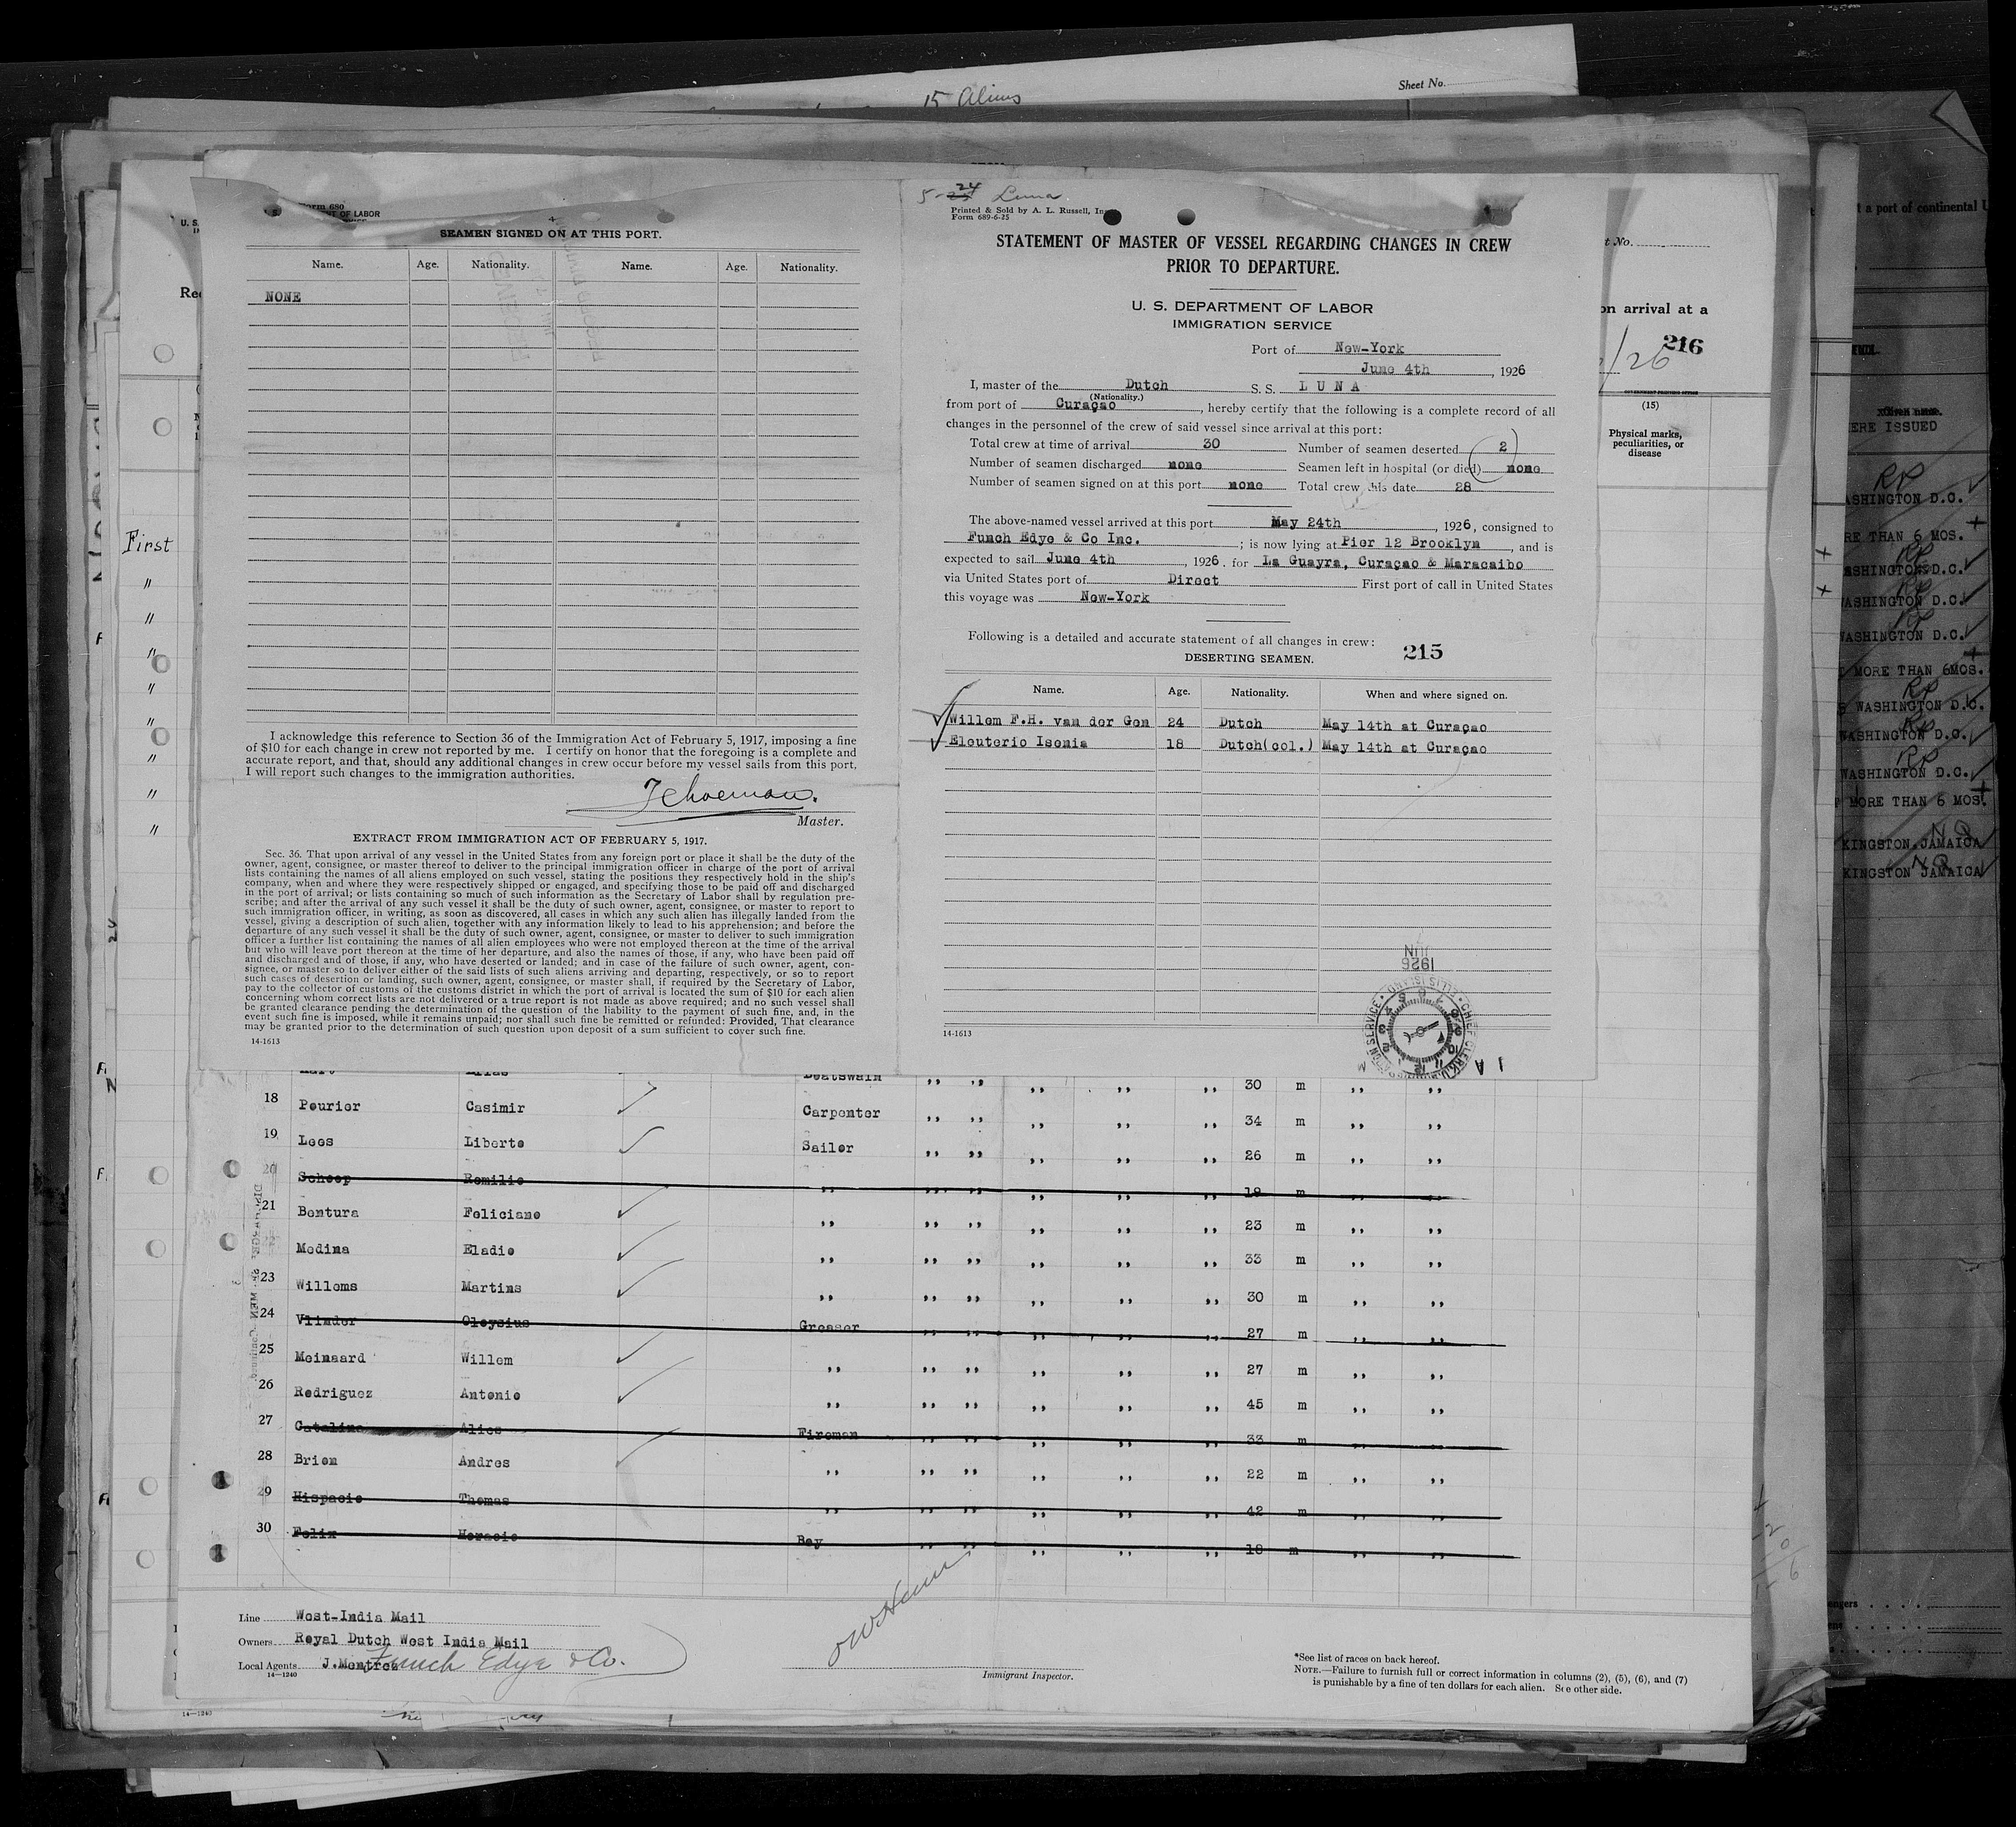 15 Aliens
Sheet No.
Form 680
OF LABOR
SEAMEN SIGNED ON AT THIS PORT.
Name. Age. Nationality. Name. Age. Nationality.
NONE
I acknowledge this reference to Section 36 of the Immigration Act of February 5, 1917, imposing a fine
of $10 for each change in crew not reported by me. I certify on honor that the foregoing is a complete and
accurate report, and that, should any additional changes in crew occur before my vessel sails from this port,
I will report such changes to the immigration authorities.
Master.
EXTRACT FROM IMMIGRATION ACT OF FEBRUARY 5, 1917.
Sec. 36. That upon arrival of any vessel in the United States from any foreign port or place it shall be the duty of the
owner, agent, consignee, or master thereof to deliver to the principal immigration officer in charge of the port of arrival
lists containing the names of all aliens employed on such vessel, stating the positions they respectively hold in the ship's
company, when and where they were respectively shipped or engaged, and specifying those to be paid off and discharged
in the port of arrival; or lists containing so much of such information as the Secretary of Labor shall by regulation pre-
scribe; and after the arrival of any such vessel it shall be the duty of such owner, agent, consignee, or master to report to
such immigration officer, in writing, as soon as discovered, all cases in which any such alien has illegally landed from the
vessel, giving a description of such alien, together with any information likely to lead to his apprehension; and before the
departure of any such vessel it shall be the duty of such owner, agent, consignee, or master to deliver to such immigration
officer a further list containing the names of all alien employees who were not employed thereon at the time of the arrival
but who will leave port thereon at the time of her departure, and also the names of those, if any, who have been paid off
and discharged and of those, if any, who have deserted or landed; and in case of the failure of such owner, agent, con-
signee, or master so to deliver either of the said lists of such aliens arriving and departing, respectively, or so to report
such cases of desertion or landing, such owner, agent, consignee, or master shall, if required by the Secretary of Labor,
pay to the collector of customs of the customs district in which the port of arrival is located the sum of $10 for each alien
concerning whom correct lists are not delivered or a true report is not made as above required; and no such vessel shall
be granted clearance pending the determination of the question of the liability to the payment of such fine, and, in the
event such fine is imposed, while it remains unpaid; nor shall such fine be remitted or refunded: Provided, That clearance
may be granted prior to the determination of such question upon deposit of a sum sufficient to cover such fine.
14-1613
5-24 Luna
Printed & Sold by A. L. Russell, Inc.
Form 689-6-25
STATEMENT OF MASTER OF VESSEL REGARDING CHANGES IN CREW
PRIOR TO DEPARTURE.
U. S. DEPARTMENT OF LABOR
IMMIGRATION SERVICE
Port of New-York
June 4th, 1926
I, master of the Dutch S. S. LUNA
(Nationality.)
from port of Curaçao, hereby certify that the following is a complete record of all
changes in the personnel of the crew of said vessel since arrival at this port:
Total crew at time of arrival 30 Number of seamen deserted 2
Number of seamen discharged none Seamen left in hospital (or died) none
Number of seamen signed on at this port none Total crew this date 28
The above-named vessel arrived at this port May 24th, 1926, consigned to
Funch Edye & Co Inc.; is now lying at Pier 12 Brooklyn, and is
expected to sail June 4th, 1926, for La Guayra, Curaçao & Maracaibo
via United States port of Direct First port of call in United States
this voyage was New-York
Following is a detailed and accurate statement of all changes in crew:
DESERTING SEAMEN. 215
Name. Age. Nationality. When and where signed on.
Willem F.H. van der Gon 24 Dutch May 14th at Curaçao
Eleuterio Isenia 18 Dutch(col.) May 14th at Curaçao
JUN
1926
14-1613
t No.
on arrival at a
216
(15)
Physical marks,
peculiarities, or
disease
t a port of continental U
ERE ISSUED
RP
ASHINGTON D.C.
RE THAN 6 MOS.
RP
ASHINGTON D.C.
RP
ASHINGTON D.C.
RP
WASHINGTON D.C.
MORE THAN 6MOS.
RP
WASHINGTON D.C.
RP
WASHINGTON D.C.
RP
WASHINGTON D.C.
MORE THAN 6 MOS.
KINGSTON JAMAICA
KINGSTON JAMAICA
First
"
"
"
"
"
"
"
"
Boatswain ,, ,, ,, ,, ,, 30 m ,, ,,
18 Peurier Casimir Carpenter ,, ,, ,, ,, ,, 34 m ,, ,,
19 Loos Liberto Sailor ,, ,, ,, ,, ,, 26 m ,, ,,
20 Schoop Romilio ,, ,, ,, ,, ,, ,, 19 m ,, ,,
21 Bentura Feliciano ,, ,, ,, ,, ,, ,, 23 m ,, ,,
Medina Eladio ,, ,, ,, ,, ,, ,, 33 m ,, ,,
23 Willems Martins ,, ,, ,, ,, ,, ,, 30 m ,, ,,
24 Vlinder Oloysius Greaser ,, ,, ,, ,, ,, 27 m ,, ,,
25 Meinaard Willem ,, ,, ,, ,, ,, ,, 27 m ,, ,,
26 Rodriguez Antonio ,, ,, ,, ,, ,, ,, 45 m ,, ,,
27 Catalina Alics Fireman ,, ,, ,, ,, ,, 33 m ,, ,,
28 Brion Andres ,, ,, ,, ,, ,, ,, 22 m ,, ,,
29 Hispacio Thomas ,, ,, ,, ,, ,, ,, 42 m ,, ,,
30 Felix Horacio Boy ,, ,, ,, ,, ,, 18 m ,, ,,
Line West-India Mail
Owners Royal Dutch West India Mail
Local Agents J.Montros Funch Edye & Co.
14-1240
Immigrant Inspector.
*See list of races on back hereof.
NOTE.—Failure to furnish full or correct information in columns (2), (5), (6), and (7)
is punishable by a fine of ten dollars for each alien. See other side.
14-1240